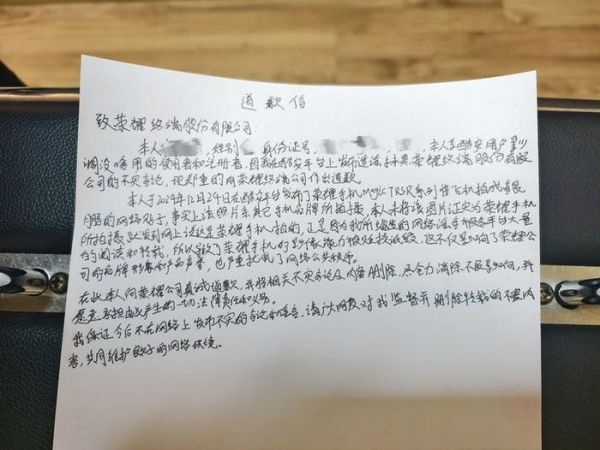 道歉信
致荣耀终端股份有限公司:
本人 ,性别 身份证号, , 本人是酷安用户
调没啥用的使用者和注册者,因我在酷安平台上发布造谣抹黑荣耀终端股份有限
公司的不实言论,现郑重的向荣耀终端公司作出道歉。
本人于2024年12月24日在酷安平台发布了荣耀手机Magic7RSR系列将飞机拍成
的网络贴子,事实上该照片系其他手机品牌所拍摄,本人未将该图片证实为荣耀手机
所拍摄就发到网上说这是荣耀手机拍的,正是因为我所编造的网络谣言被各平台大量
的阅读和转载,所以导致了荣耀手机的影像能力被歪曲诋毁,这不仅影响了荣耀公
司的品牌形象和产品声誉,也严重扰乱了网络公共秩序。
在此本人向荣耀公司真诚道歉,并将相关不实言论及内容删除,尽全力消除不良影响,并
愿意承担由此产生的一切法律责任和义务。
我保证今后不在网络上发布不实的言论和谣言,请广大网友对我监督并删除转载的不实内
容,共同维护良好的网络环境。